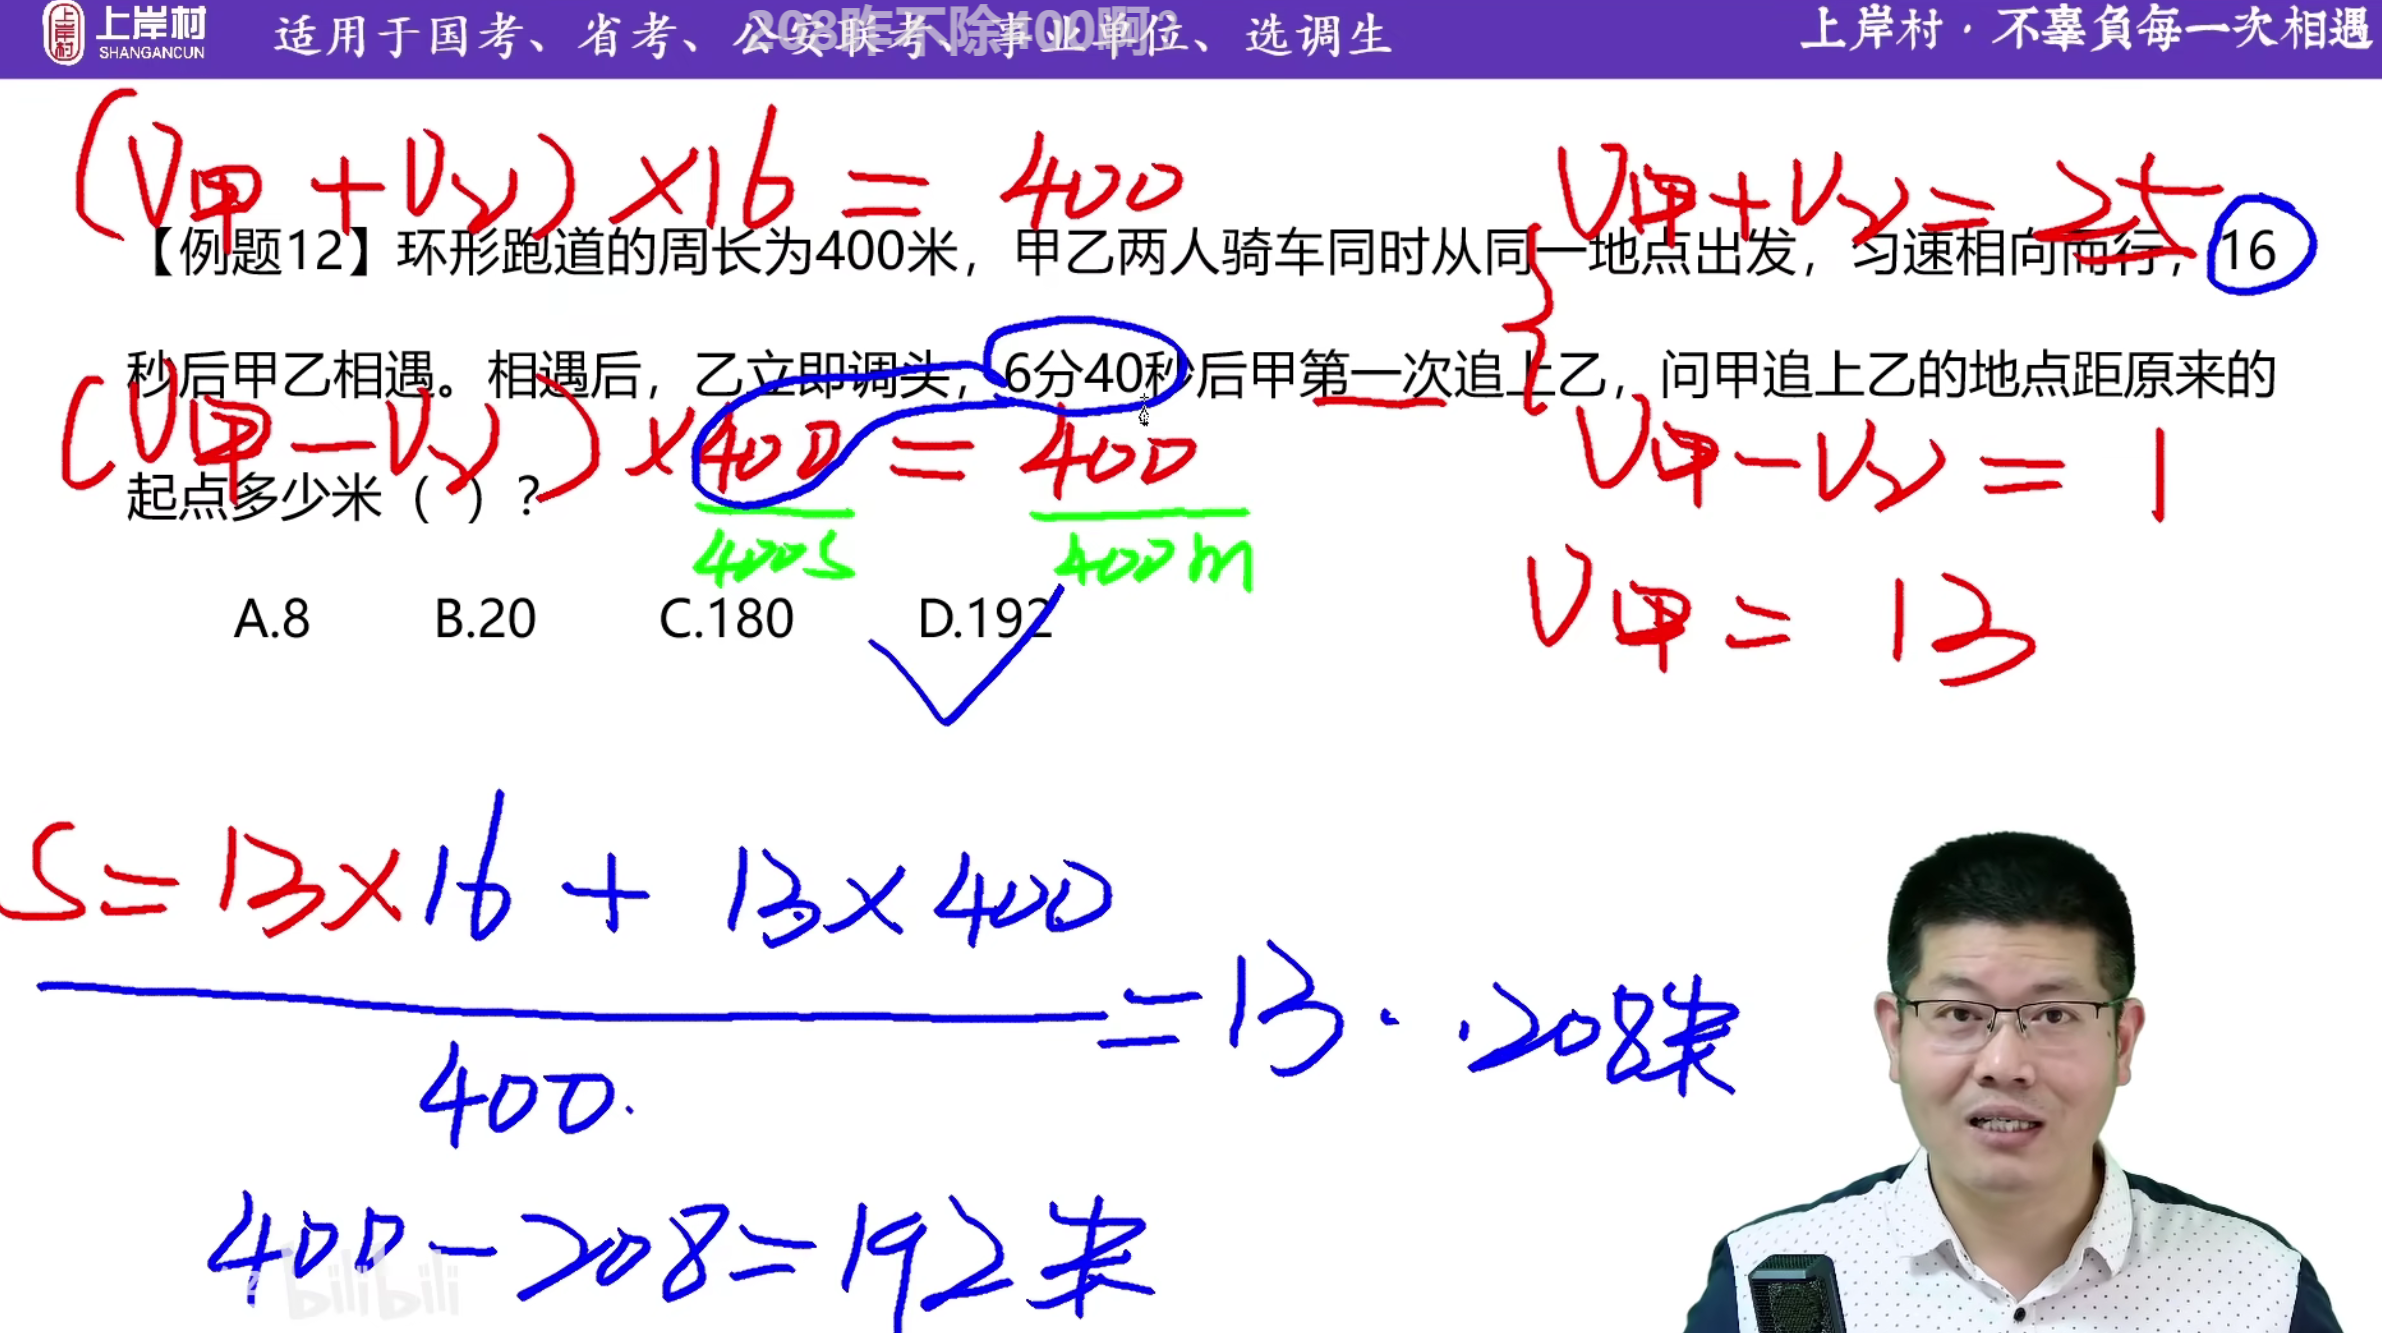 上岸村
SHANGANCUN
适用于国考、省考、公安联考、事业单位、选调生
208咋不除400啊?
上岸村·不辜負每一次相遇
(V甲+V乙)×16=400
V甲+V乙=25
【例题12】环形跑道的周长为400米，甲乙两人骑车同时从同一地点出发，匀速相向而行，16
秒后甲乙相遇。相遇后，乙立即调头，6分40秒后甲第一次追上乙，问甲追上乙的地点距原来的
(V甲-V乙)×400=400
V甲-V乙=1
起点多少米（ ）？
400s
400m
V甲=13
A.8 B.20 C.180 D.192
S=13×16+13×400
400
=13··208米
400-208=192米
bilibili